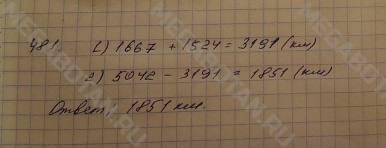 481. 1) 1667 + 1524 = 3191 (км)
2) 5042 - 3191 = 1851 (км)
Ответ: 1851 км.
MEGABOTAN.RU